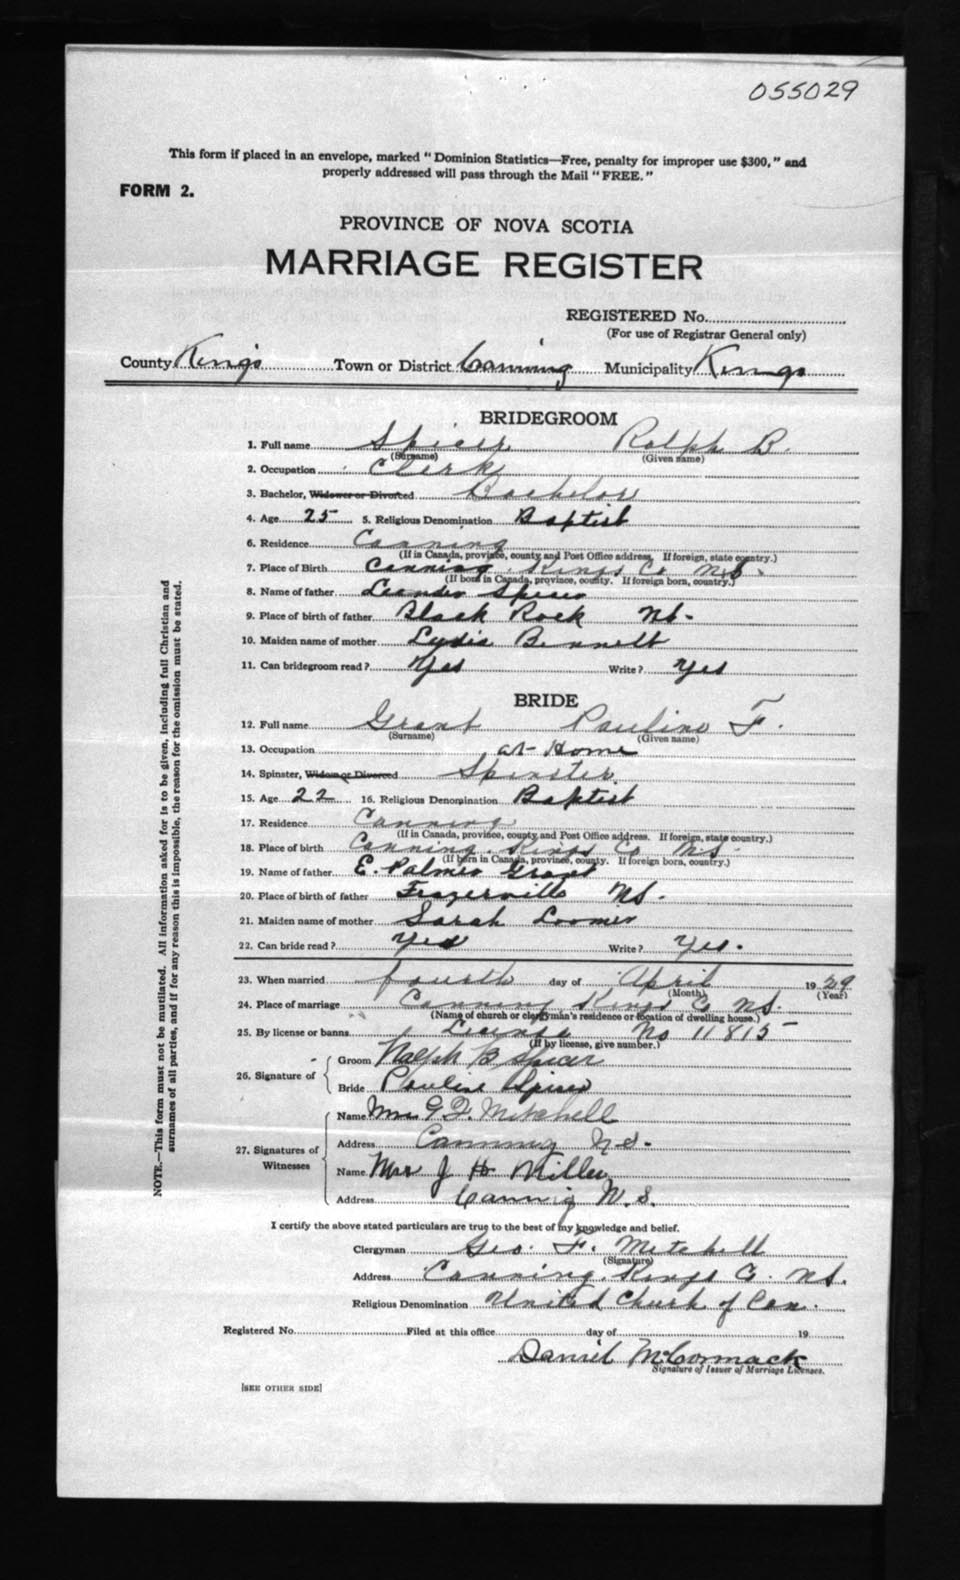 055029
This form if placed in an envelope, marked " Dominion Statistics—Free, penalty for improper use $300," and
properly addressed will pass through the Mail " FREE."
FORM 2.
PROVINCE OF NOVA SCOTIA
MARRIAGE REGISTER
REGISTERED No.
(For use of Registrar General only)
County Kings Town or District Canning Municipality Kings
BRIDEGROOM
1. Full name Spicer Ralph B.
(Surname) (Given name)
2. Occupation Clerk
3. Bachelor, Widower or Divorced Bachelor
4. Age 25 5. Religious Denomination Baptist
6. Residence Canning
(If in Canada, province, county and Post Office address. If foreign, state country.)
7. Place of Birth Canning Kings Co N.S.
(If born in Canada, province, county. If foreign born, country.)
8. Name of father Leander Spicer
9. Place of birth of father Black Rock NS.
10. Maiden name of mother Lydia Bennett
11. Can bridegroom read? Yes Write? Yes
BRIDE
12. Full name Grant Pauline F.
(Surname) (Given name)
13. Occupation at Home
14. Spinster, Widow or Divorced Spinster
15. Age 22 16. Religious Denomination Baptist
17. Residence Canning
(If in Canada, province, county and Post Office address. If foreign, state country.)
18. Place of birth Canning, Kings Co N.S.
(If born in Canada, province, county. If foreign born, country.)
19. Name of father E. Palmer Grant
20. Place of birth of father Frazerville NS.
21. Maiden name of mother Sarah Loomer
22. Can bride read? Yes Write? Yes.
23. When married fourth day of April 1929
(Month) (Year)
24. Place of marriage Canning Kings Co NS.
(Name of church or clergyman's residence or location of dwelling house.)
25. By license or banns License No 11815
(If by license, give number.)
26. Signature of
Groom Ralph B Spicer
Bride Pauline Spicer
27. Signatures of Witnesses
Name Mrs G F. Mitchell
Address Canning N.S.
Name Mrs J H Miller
Address Canning N.S.
I certify the above stated particulars are true to the best of my knowledge and belief.
Clergyman Geo. F. Mitchell
(Signature)
Address Canning, Kings Co. NS.
Religious Denomination United Church of Can.
Registered No. Filed at this office day of 19
Daniel McCormack
Signature of Issuer of Marriage Licenses.
[SEE OTHER SIDE]
NOTE.—This form must not be mutilated. All information asked for is to be given, including full Christian and
surnames of all parties, and if for any reason this is impossible, the reason for the omission must be stated.